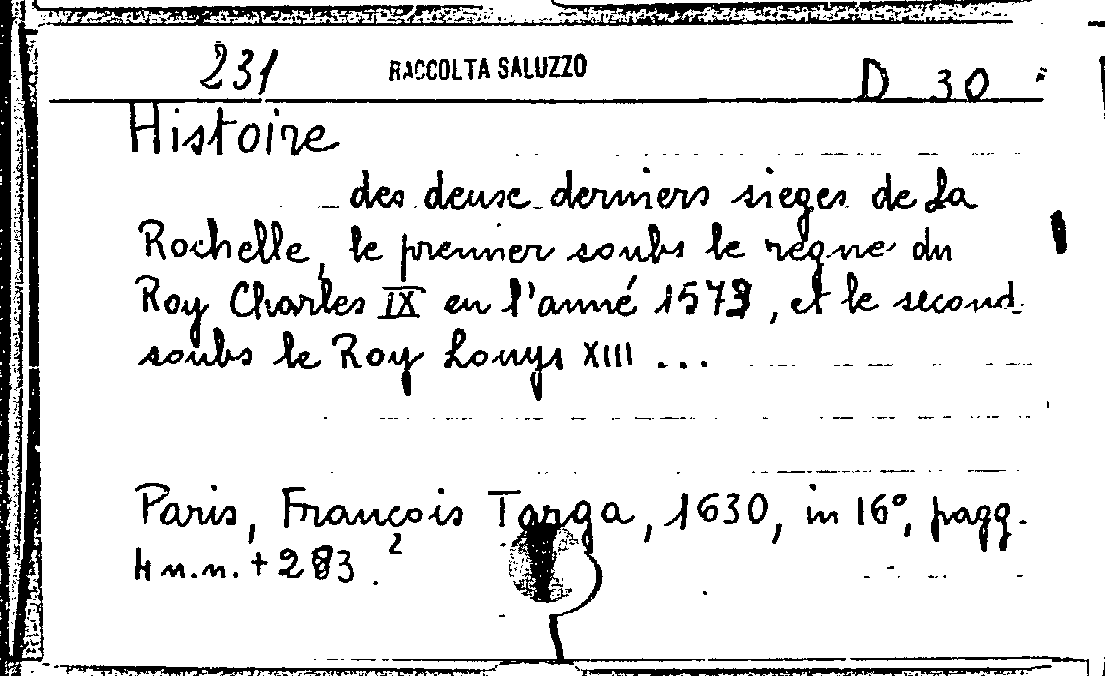 231 RACCOLTA SALUZZO D 30
Histoire
des deux derniers sieges de La
Rochelle, le premier soubs le règne du
Roy Charles IX en l'anné 1573, et le second
soubs le Roy Louys XIII ...
Paris, François Targa, 1630, in 16°, pagg.
4 n.n. + 283. 2